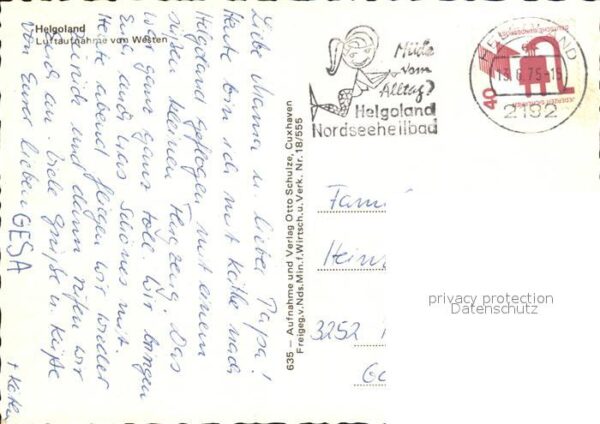 Helgoland
Luftaufnahme von Westen
Liebe Mama u. lieber Papa!
Heute bin ich mit Käthe nach
Helgoland geflogen mit einem
süßen kleinen Flugzeug. Das
war ganz ganz toll. Wir bringen
Euch auch was Schönes mit.
Heute abend fliegen wir wieder
zurück und dann rufen wir
an. Viele Grüße u. Küße
von Eurer lieben GESA
+ Käthe
635 – Aufnahme und Verlag Otto Schulze, Cuxhaven
Freigeg. v. Nds. Min. f. Wirtsch. u. Verk. Nr. 18/555
Müde
vom
Alltag?
Helgoland
Nordseeheilbad
HELGOLAND
13.6.75-15
2192
40
DEUTSCHE BUNDESPOST
JEDERZEIT SICHERHEIT
Fami
Hein
3252
privacy protection
Datenschutz